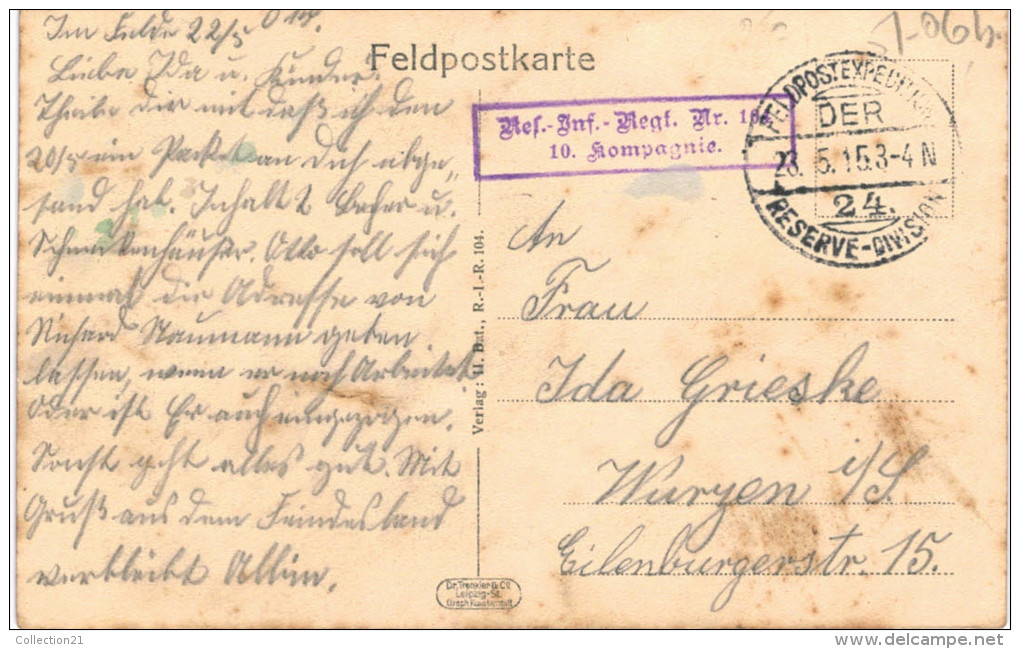 Im Felde 22/5
Liebe Ida u. Kinder.
Theile dir mit daß ich den
20/5 ein Packet an Dich abge„
sand hat. Inhalt 2 Becher u.
Schneckenhäuser. Otto soll sich
einmal die Adresse von
Richard Naumann geben
lassen, wenn er noch Arbeitet
Oder ist Er auch eingezogen.
Sonst geht alles gut. Mit
Gruß aus dem Feindesland
verbleibt Albin.
Feldpostkarte
Res.-Inf.-Regt. Nr. 10
10. Kompagnie.
FELDPOSTEXPEDITION
DER
23. 5. 15. 3-4 N
24.
RESERVE-DIVISION
Verlag: II. Bat., R.-I.-R. 104.
An
Frau
Ida Grieske
Wurzen i/S.
Eilenburgerstr. 15.
Dr. Trenkler & Co.
Leipzig-St.
Graph. Kunstanstalt
Collection21
www.delcampe.net